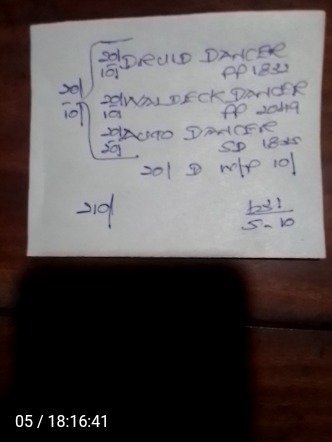 20/ 10/ DRUID DANCER
PP 1832
20/ 10/
20/ 10/ WALDECK DANCER
PP 2049
20/ AUTO DANCER
SD 1825
20/ D W/P 10/
210/
5-10
05 / 18:16:41